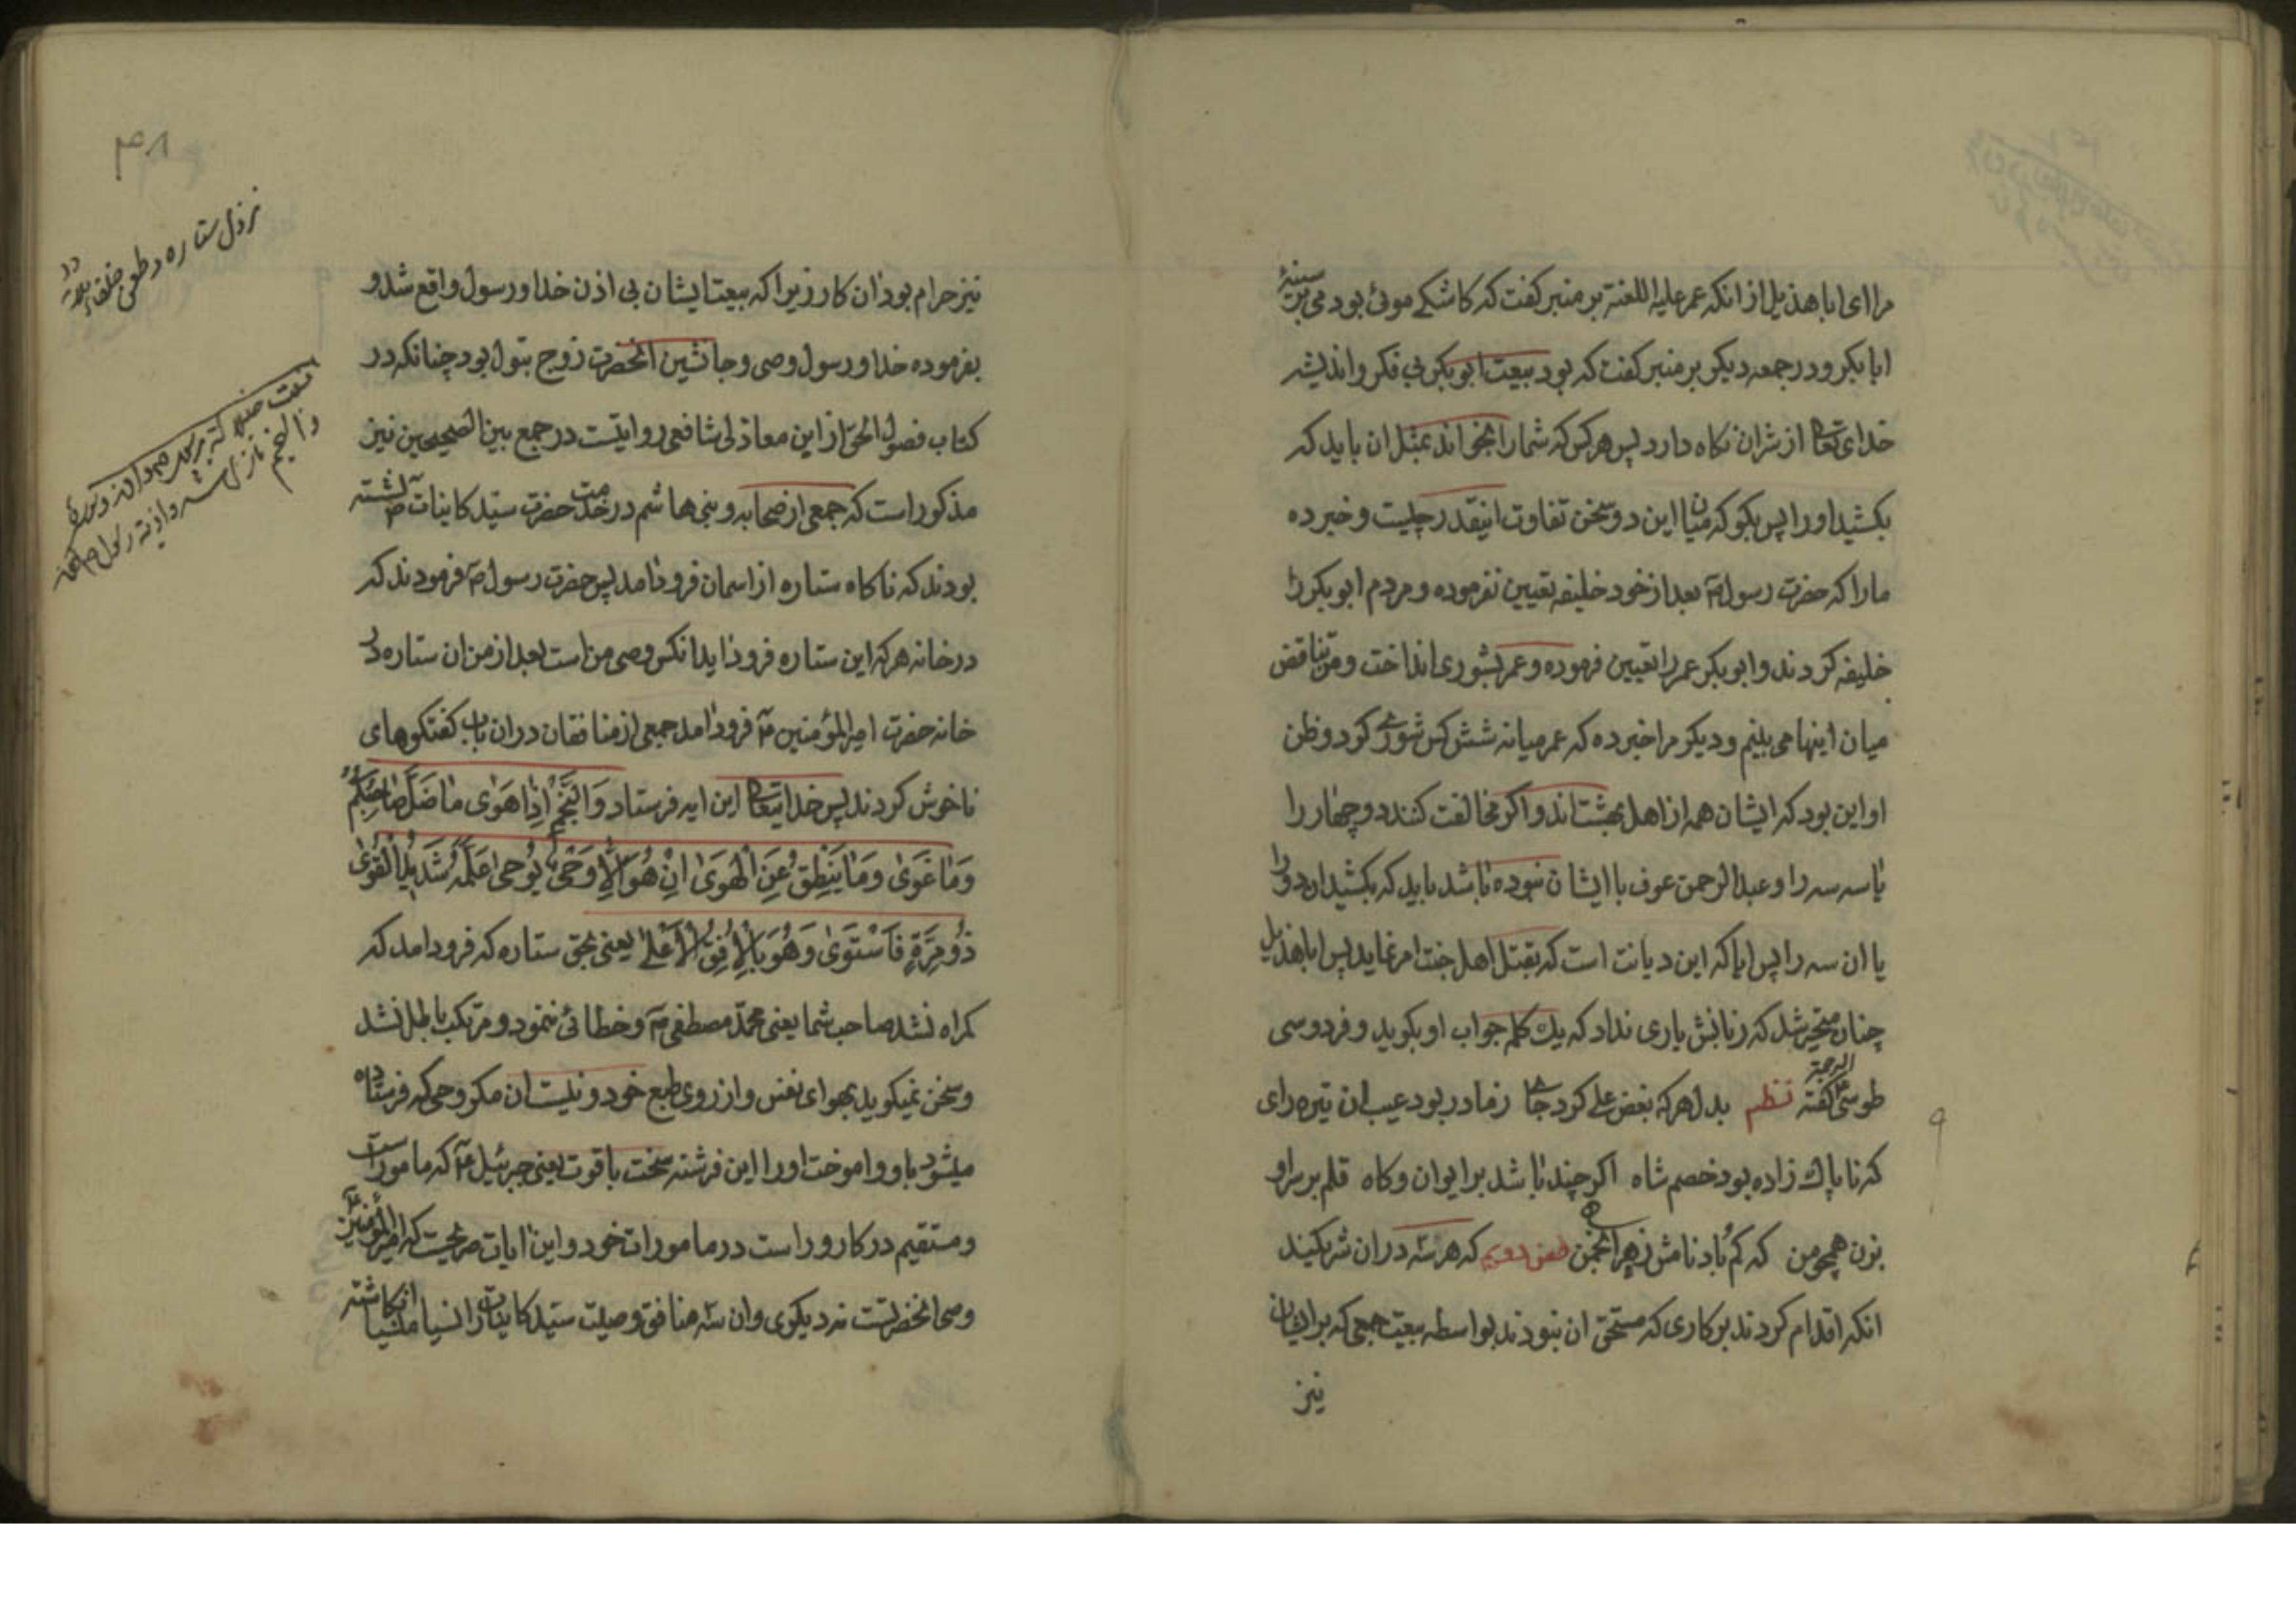 مرا ای ابا هذیل از انکه عمر علیه اللعنة بر منبر کفت که کاشکے موئی بودمی بر سینهٔ
ابا بکر و در جمعه دیکر بر منبر کفت که بود بیعت ابوبکر بی فکر و اندیشه
خدای تعا از شر ان نکاه دارد پس هر کس که شما را بخواند بمثل ان باید که
بکشید او را پس بکو که میان این دو سخن تفاوت اینقدر چیست و خبر ده
ما را که حضرت رسول ص بعد از خود خلیفه تعیین نفرموده و مردم ابوبکر را
خلیفه کردند و ابوبکر عمر را تعیین فرموده و عمر بشوری انداخت و من تناقض
میان اینها می بینم و دیکر مرا خبر ده که عمر میانه شش کس شوری کرد و ظن
او این بود که ایشان همه از اهل بهشت اند و اکر مخالفت کنند دو چهار را
یا سه سه را و عبد الرحمن عوف با ایشان نبوده باشد باید که بکشید ان دو را
یا ان سه را پس ایا که این دیانت است که بقتل اهل جنت امر نماید پس ابا هذیل
چنان متحیر شد که زبانش یاری نداد که یك کلمه جواب او بکوید و فردوسی
طوسی علیه الرحمة کفته نظم بدل هر که بغض علی کرد جا ز مادر بود عیب ان تیره رای
که ناپاك زاده بود خصم شاه اکر چند باشد بر ایوان و کاه قلم بر سر او
بزن همچو من که کم باد نامش ز هر انجمن طعن دویم که هر سه در ان شریکند
انکه اقدام کردند بر کاری که مستحق ان نبودند بواسطه بیعت جمعی که بر ایشان
نیز
۴۸
نزول ستاره و طعن خلفاء
نیز حرام بود ان کار زیرا که بیعت ایشان بی اذن خدا و رسول واقع شد و
بفرموده خدا و رسول وصی و جانشین انحضرت زوج بتول بود چنانکه در
کتاب فصول الحق از ابن مغازلی شافعی روایتست در جمع بین الصحیحین نیز
مذکور است که جمعی از صحابه و بنی هاشم در خدمت حضرت سید کاینات ص نشسته
بودند که ناکاه ستاره از اسمان فرود امد پس حضرت رسول ص فرمودند که
در خانه هر که این ستاره فرود اید انکس وصی من است بعد از من ان ستاره در
خانه حضرت امیر المؤمنین ع فرود امد جمعی از منافقان در ان باب کفتکوهای
ناخوش کردند پس خدایتعا این ایه فرستاد وَالنَّجْمِ اِذَا هَوٰی مَا ضَلَّ صَاحِبُکُمْ
وَمَا غَوٰی وَمَا یَنْطِقُ عَنِ الْهَوٰی اِنْ هُوَ اِلَّا وَحْیٌ یُوحٰی عَلَّمَهُ شَدِیدُ الْقُوٰی
ذُو مِرَّةٍ فَاسْتَوٰی وَهُوَ بِالْاُفُقِ الْاَعْلٰی یعنی بحق ستاره که فرود امد که
کمراه نشد صاحب شما یعنی محمّد مصطفی ص و خطائی ننمود و مرتکب باطل نشد
و سخن نمیکوید بهوای نفس و از روی طبع خود و نیست ان مکر وحی که فرستاده
میشود باو و اموخت او را این فرشته سخت باقوت یعنی جبرئیل ع که مامور است
و مستقیم در کار و راست در مامورات خود و این ایات صریحست که امیر المؤمنین ع
وصی انحضرتست نه دیکری و ان سه منافق وصیت سید کاینات را نسیا منسیا انکاشته